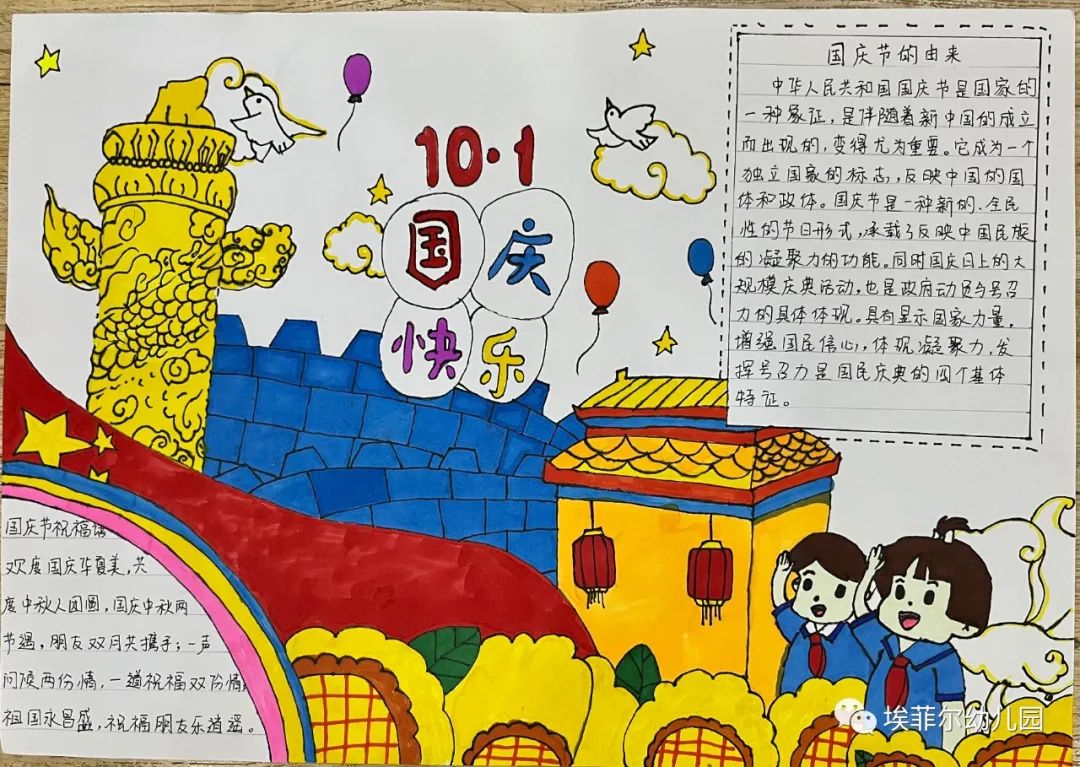 10·1
国庆
快乐
国庆节的由来
中华人民共和国国庆节是国家的
一种象征，是伴随着新中国的成立
而出现的，变得尤为重要。它成为一个
独立国家的标志，反映中国的国
体和政体。国庆节是一种新的、全民
性的节日形式，承载了反映中国民族
的凝聚力的功能。同时国庆日上的大
规模庆典活动，也是政府动员与号召
力的具体体现。具有显示国家力量，
增强国民信心，体现凝聚力，发
挥号召力是国民庆典的四个基体
特征。
国庆节祝福语
欢度国庆华夏美，共
度中秋人团圆，国庆中秋两
节遇，朋友双月共携手；一声
问候两份情，一道祝福双份情，
祖国永昌盛，祝福朋友乐逍遥。
埃菲尔幼儿园